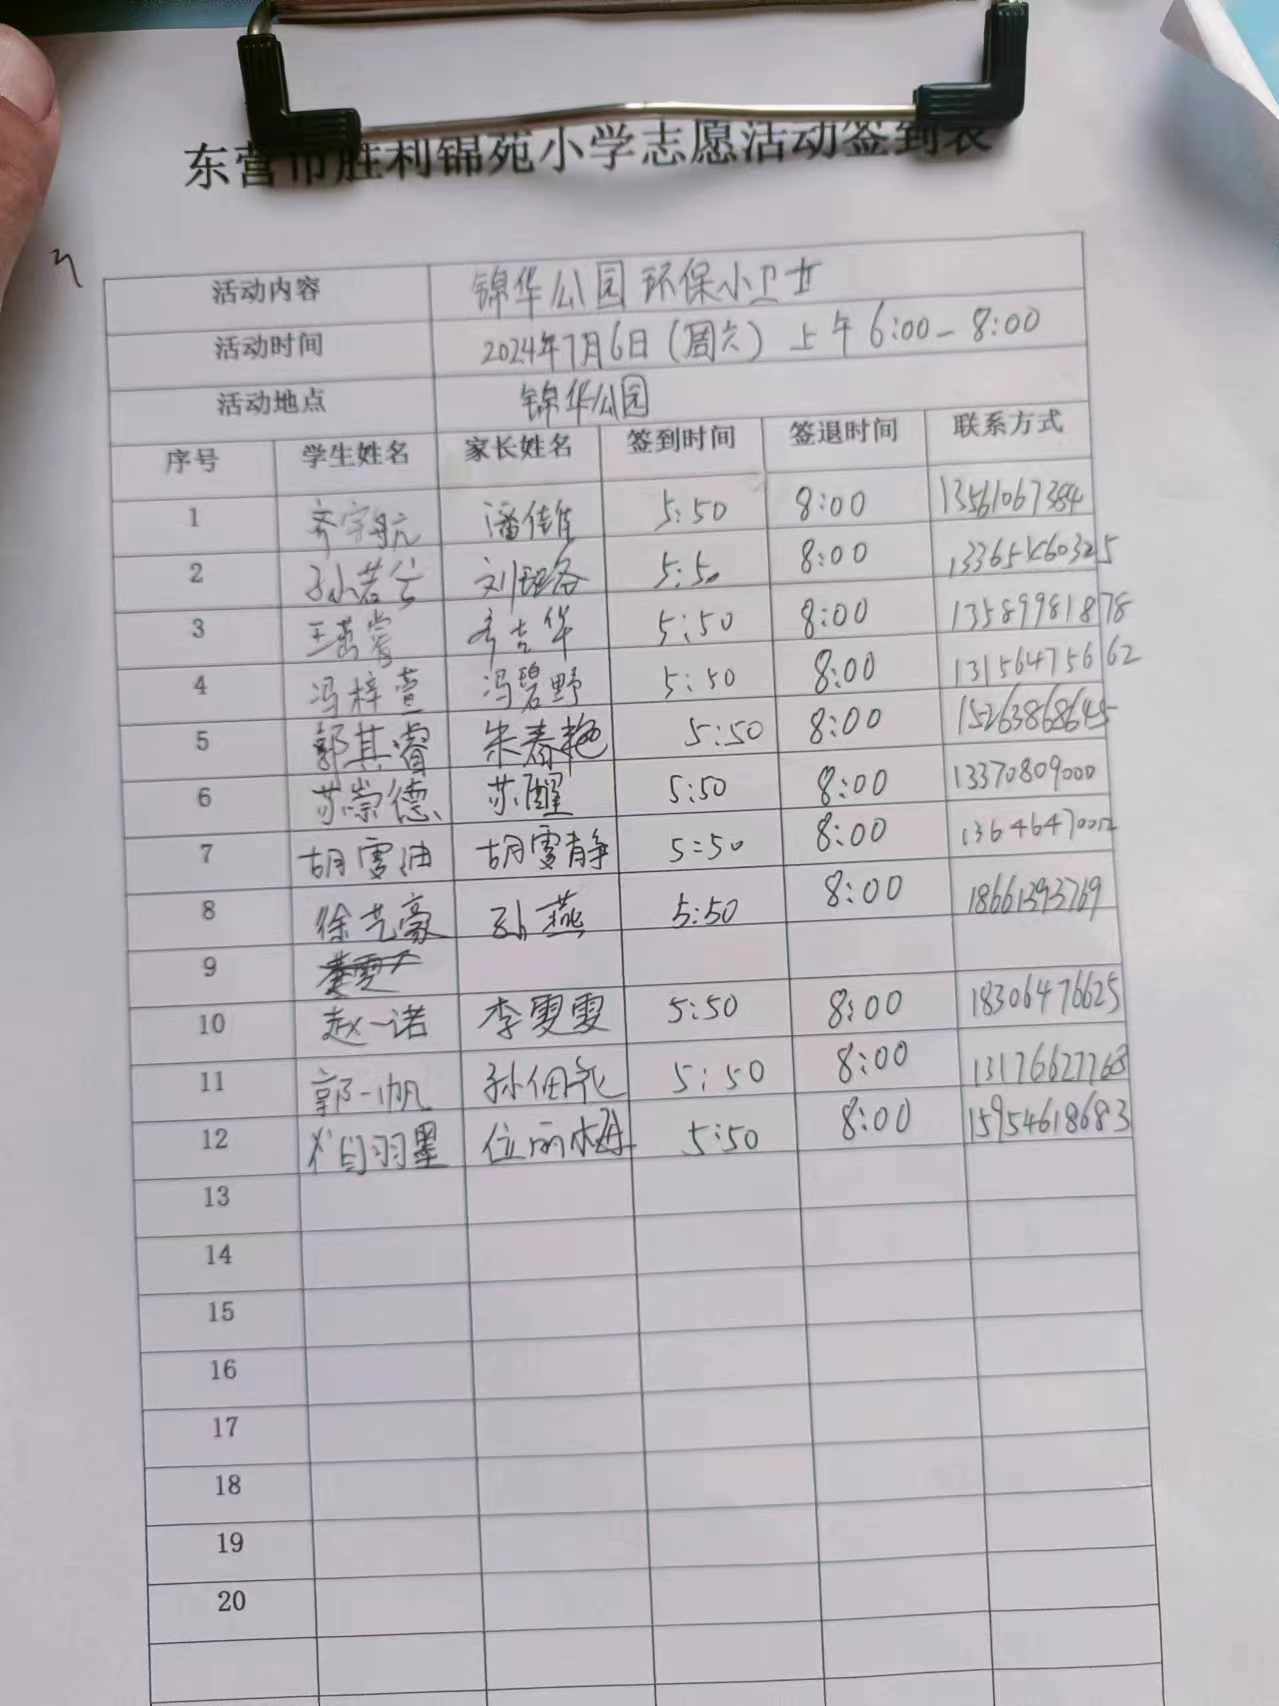 东营市胜利锦苑小学志愿活动签到表
活动内容 锦华公园环保小卫士
活动时间 2024年7月6日（周六）上午6:00-8:00
活动地点 锦华公园
序号 学生姓名 家长姓名 签到时间 签退时间 联系方式
1 齐宇航 5:50 8:00 13561067384
2 孙若兮 5:50 8:00
3 5:50 8:00 13589981878
4 冯梓萱 冯碧野 5:50 8:00 13156475662
5 郭其睿 朱春艳 5:50 8:00 15263868645
6 苏崇德 苏醒 5:50 8:00 13370809000
7 胡雪迪 胡雪静 5:50 8:00
8 徐艺豪 孙燕 5:50 8:00 18661393769
9
10 赵一诺 李雯雯 5:50 8:00 18306476625
11 郭一帆 5:50 8:00 13176627768
12 5:50 8:00 15954618683
13
14
15
16
17
18
19
20